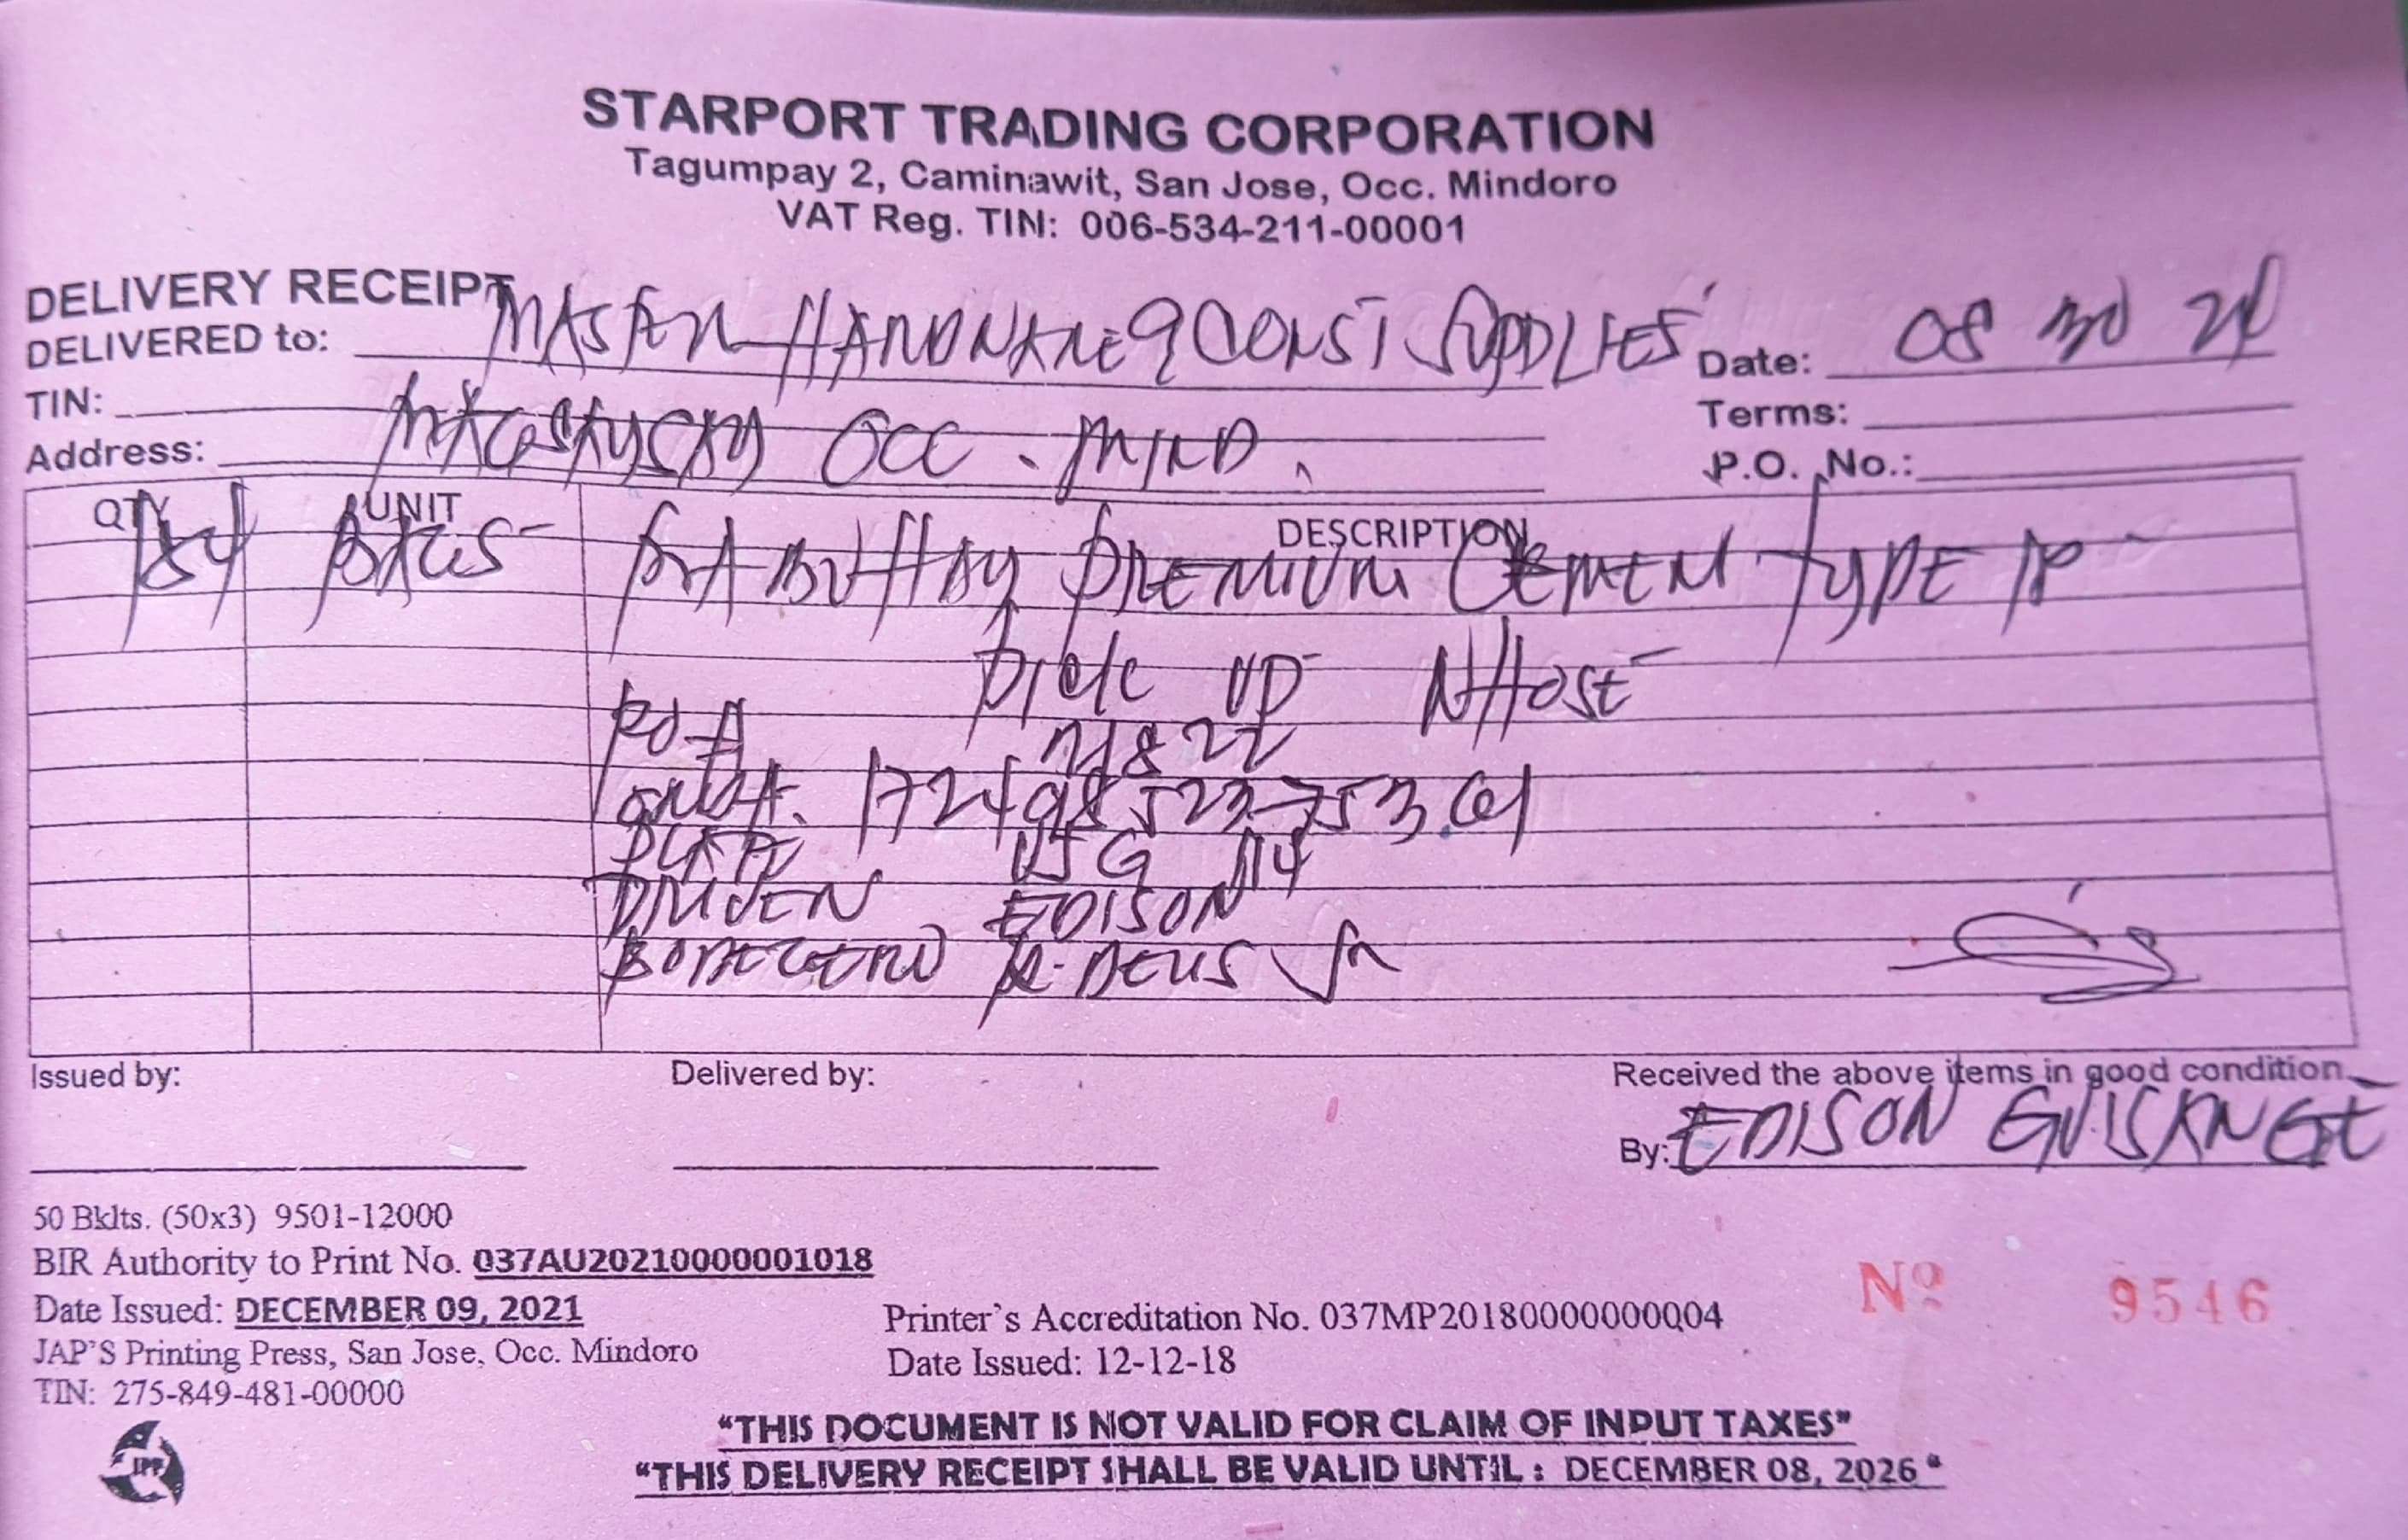 STARPORT TRADING CORPORATION
Tagumpay 2, Caminawit, San Jose, Occ. Mindoro
VAT Reg. TIN: 006-534-211-00001
DELIVERY RECEIPT
DELIVERED to: MASTER HARDWARE & CONST SUPPLIES Date: 08 30 24
TIN: Terms:
Address: OCC. MIND. P.O. No.:
QTY UNIT DESCRIPTION
BAGS PREMIUM CEMENT TYPE 1P
Pick UP WHOSE
PO #
172498523753.61
PLATE 114
DRIVER EDISON
BODEGERO JR
Issued by: Delivered by: Received the above items in good condition
By: EDISON
50 Bklts. (50x3) 9501-12000
BIR Authority to Print No. 037AU20210000001018
Date Issued: DECEMBER 09, 2021
JAP'S Printing Press, San Jose, Occ. Mindoro
TIN: 275-849-481-00000
JPP
Printer's Accreditation No. 037MP20180000000004
Date Issued: 12-12-18
Nº 9546
"THIS DOCUMENT IS NOT VALID FOR CLAIM OF INPUT TAXES"
"THIS DELIVERY RECEIPT SHALL BE VALID UNTIL : DECEMBER 08, 2026"